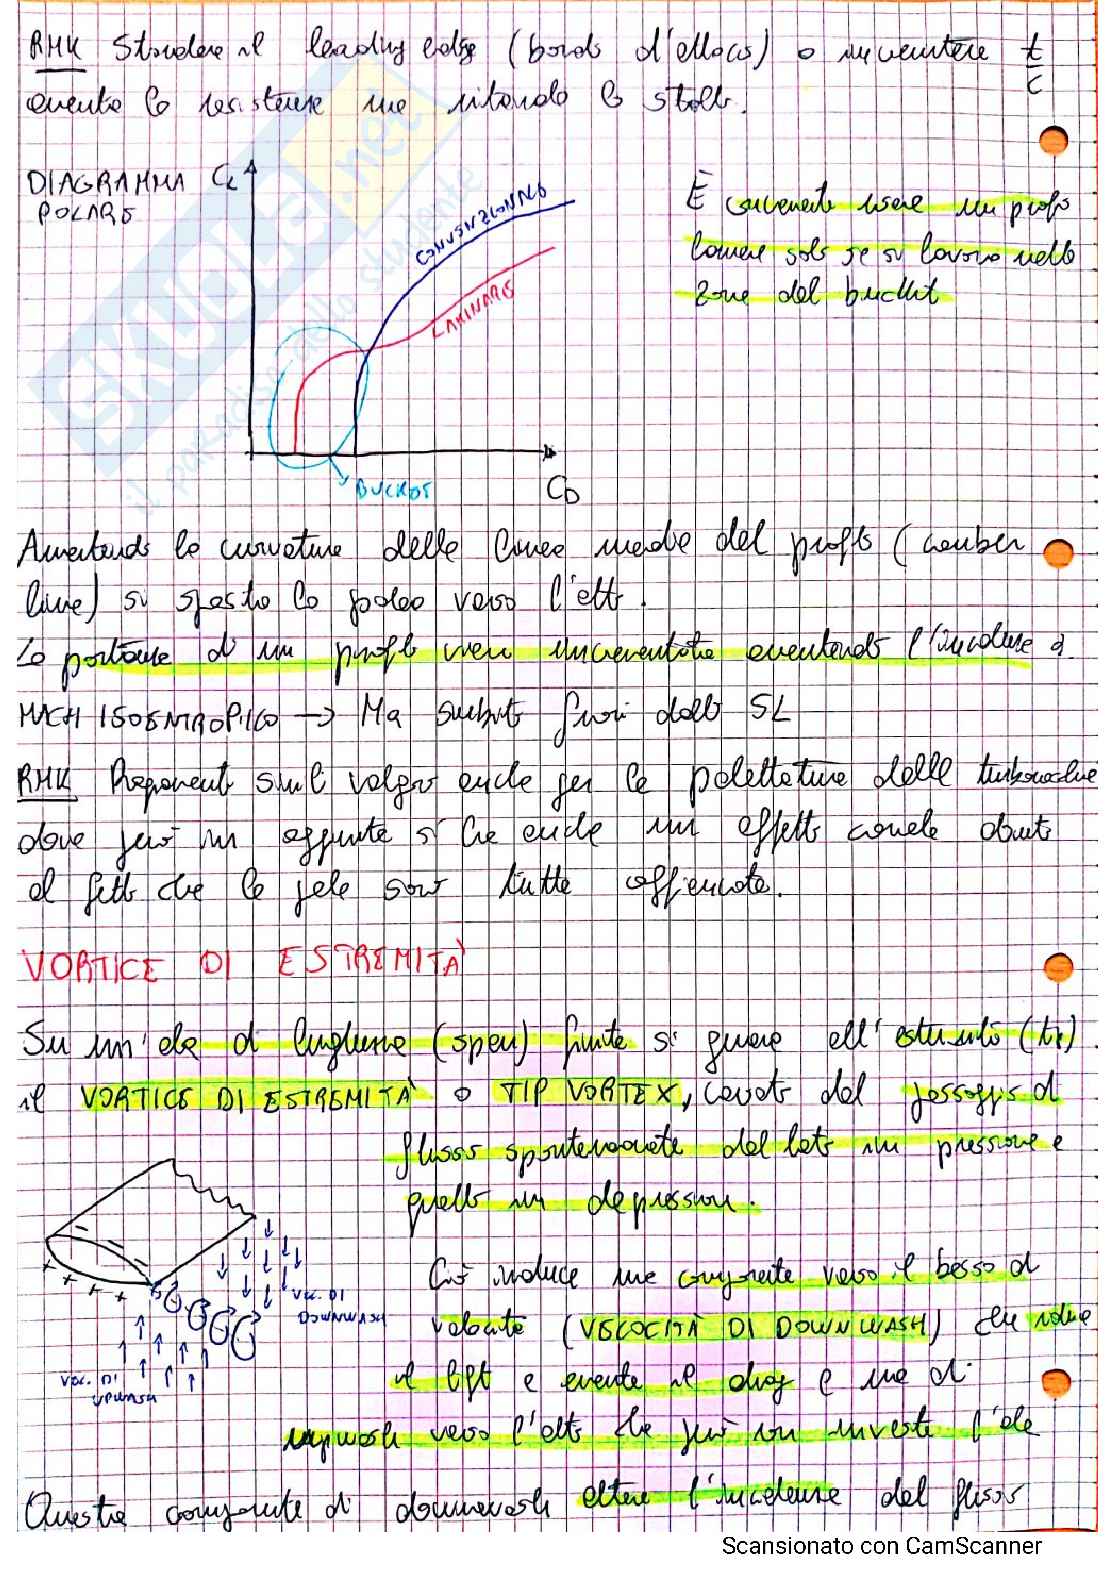 RMK Stondare il leading edge (bordo d'attacco) o incrementare t/c
aumenta la resistenza ma ritarda lo stallo.
DIAGRAMMA POLARE
CL
CONVENZIONALE
LAMINARE
BUCKET
CD
È conveniente usare un profilo
laminare solo se si lavora nella
zona del bucket
Aumentando la curvatura della linea media del profilo (camber
line) si sposta la polare verso l'alto.
La portanza di un profilo viene incrementata aumentando l'incidenza α
MACH ISOENTROPICO → Ma subito fuori dallo SL
RMK Ragionamenti simili valgono anche per le palettature delle turbomacchine
dove però in aggiunta si ha anche un effetto canale dovuto
al fatto che le pale sono tutte affiancate.
VORTICE DI ESTREMITÀ
Su un'ala di lunghezza (span) finita si genera all'estremità (tip)
il VORTICE DI ESTREMITÀ o TIP VORTEX, causato dal passaggio di
flusso spontaneamente dal lato in pressione e
quello in depressione.
Ciò induce una componente verso il basso di
velocità (VELOCITÀ DI DOWNWASH) che riduce
il lift e aumenta il drag e una di
upwash verso l'alto che però non investe l'ala
VEL. DI DOWNWASH
VEL. DI UPWASH
Questa componente di downwash altera l'incidenza del flusso
Scansionato con CamScanner
SKUOLA.net
il paradiso dello studente